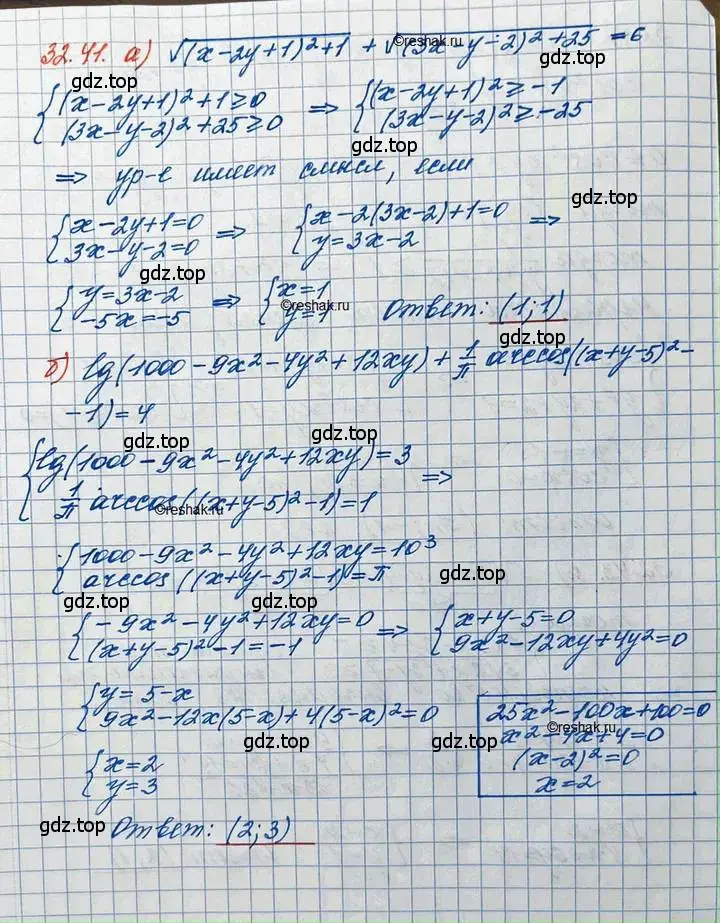 32.41. а) √((x-2y+1)²+1) + √((3x-y-2)²+25) = 6
gdz.top
{(x-2y+1)²+1≥0 ⇒ {(x-2y+1)²≥-1
(3x-y-2)²+25≥0 (3x-y-2)²≥-25
gdz.top
⇒ ур-е имеет смысл, если
gdz.top
{x-2y+1=0 ⇒ {x-2(3x-2)+1=0 ⇒
3x-y-2=0 y=3x-2
gdz.top
{y=3x-2 ⇒ {x=1 Ответ: (1;1)
-5x=-5 y=1
©reshak.ru gdz.top
б) lg(1000-9x²-4y²+12xy) + 1/π arccos((x+y-5)²-
-1)=4
gdz.top gdz.top
{lg(1000-9x²-4y²+12xy)=3 ⇒
1/π arccos((x+y-5)²-1)=1
©reshak.ru
{1000-9x²-4y²+12xy=10³
arccos((x+y-5)²-1)=π
gdz.top gdz.top
{-9x²-4y²+12xy=0 ⇒ {x+y-5=0
(x+y-5)²-1=-1 9x²-12xy+4y²=0
gdz.top
{y=5-x
9x²-12x(5-x)+4(5-x)²=0
25x²-100x+100=0
x²-4x+4=0
©reshak.ru
(x-2)²=0
x=2
gdz.top gdz.top
{x=2
y=3
gdz.top
Ответ: (2;3)
gdz.top